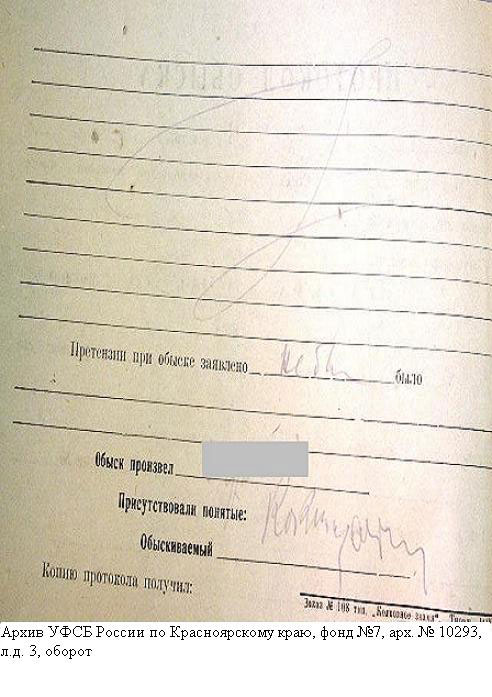 Претензии при обыске заявлено не было
Обыск произвел
Присутствовали понятые:
Обыскиваемый
Копию протокола получил:
Заказ № 108 тип. „Колхозное знамя".
Архив УФСБ России по Красноярскому краю, фонд №7, арх. № 10293,
л.д. 3, оборот